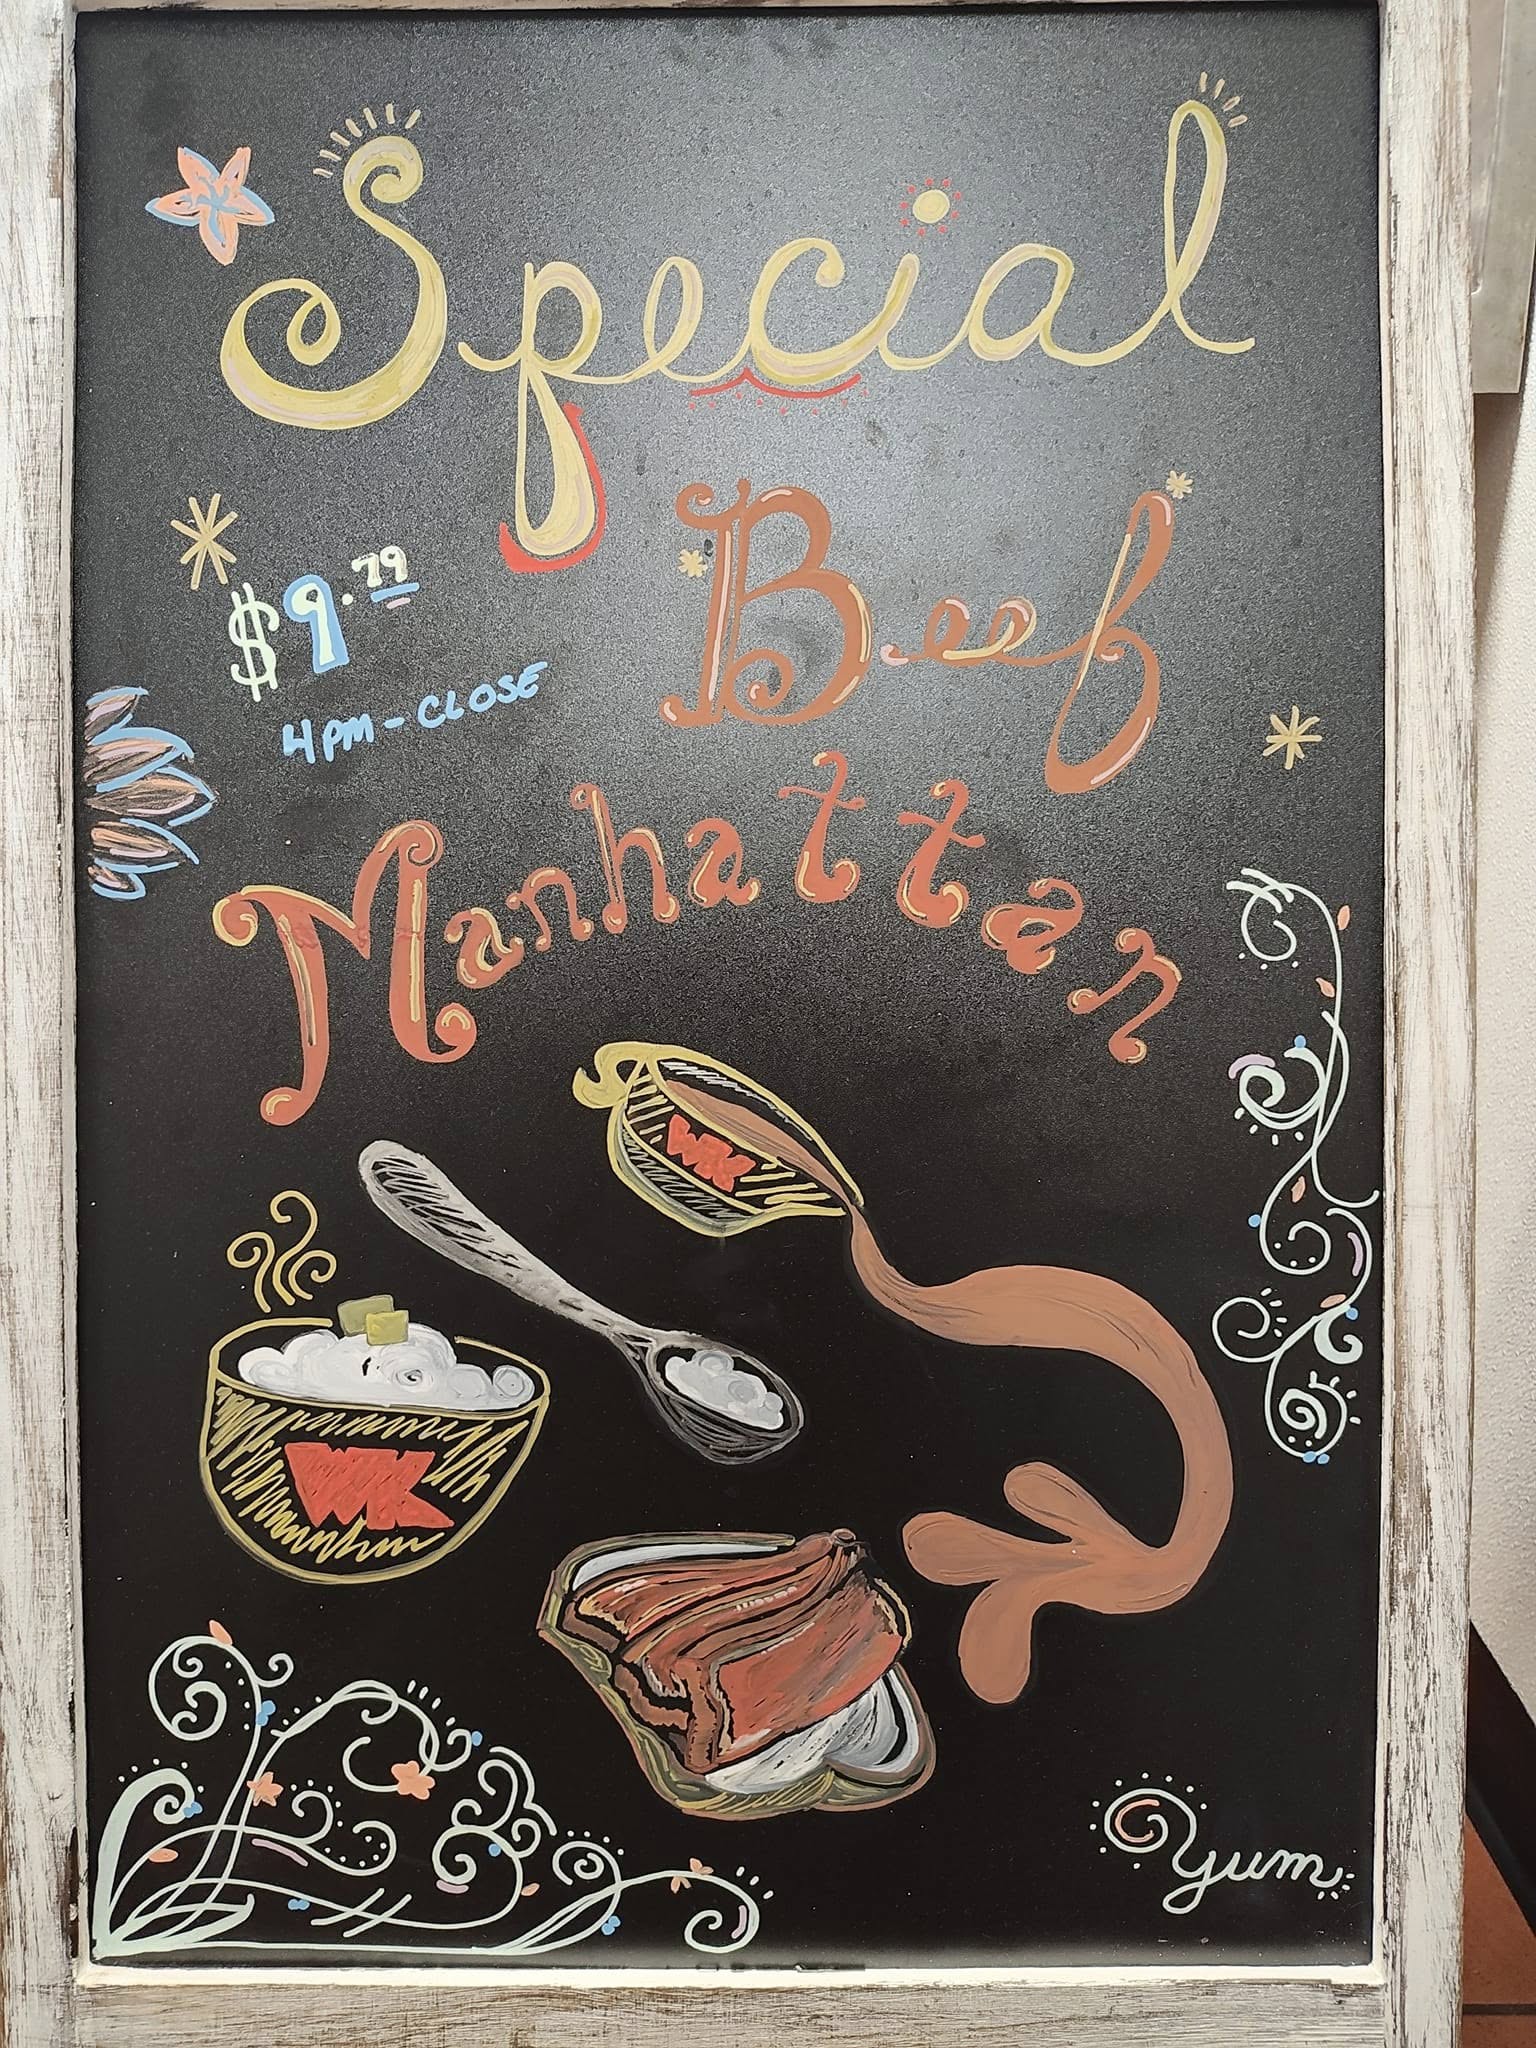 Special
Beef
$9.79
4PM-CLOSE
Manhattan
WK
WK
yum